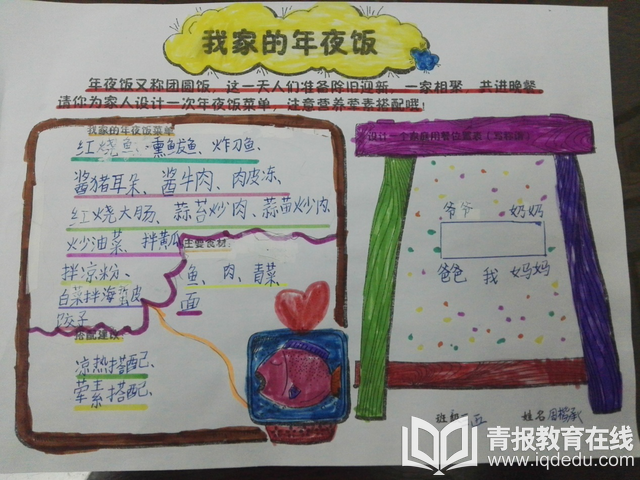 我家的年夜饭
年夜饭又称团圆饭，这一天人们准备除旧迎新，一家相聚，共进晚餐
请你为家人设计一次年夜饭菜单，注意营养荤素搭配哦！
我家的年夜饭菜单
红烧鱼、熏鲅鱼、炸刀鱼、
酱猪耳朵、酱牛肉、肉皮冻、
红烧大肠、蒜苔炒肉、蒜苗炒肉
炒油菜、拌黄瓜
拌凉粉、
白菜拌海蜇皮
饺子
主要食材：
鱼、肉、青菜
面
搭配建议
凉热搭配、
荤素搭配、
设计一个家庭用餐位置表（写称谓）
爷爷 奶奶
爸爸 我 妈妈
班级
姓名
青报教育在线
www.iqdedu.com